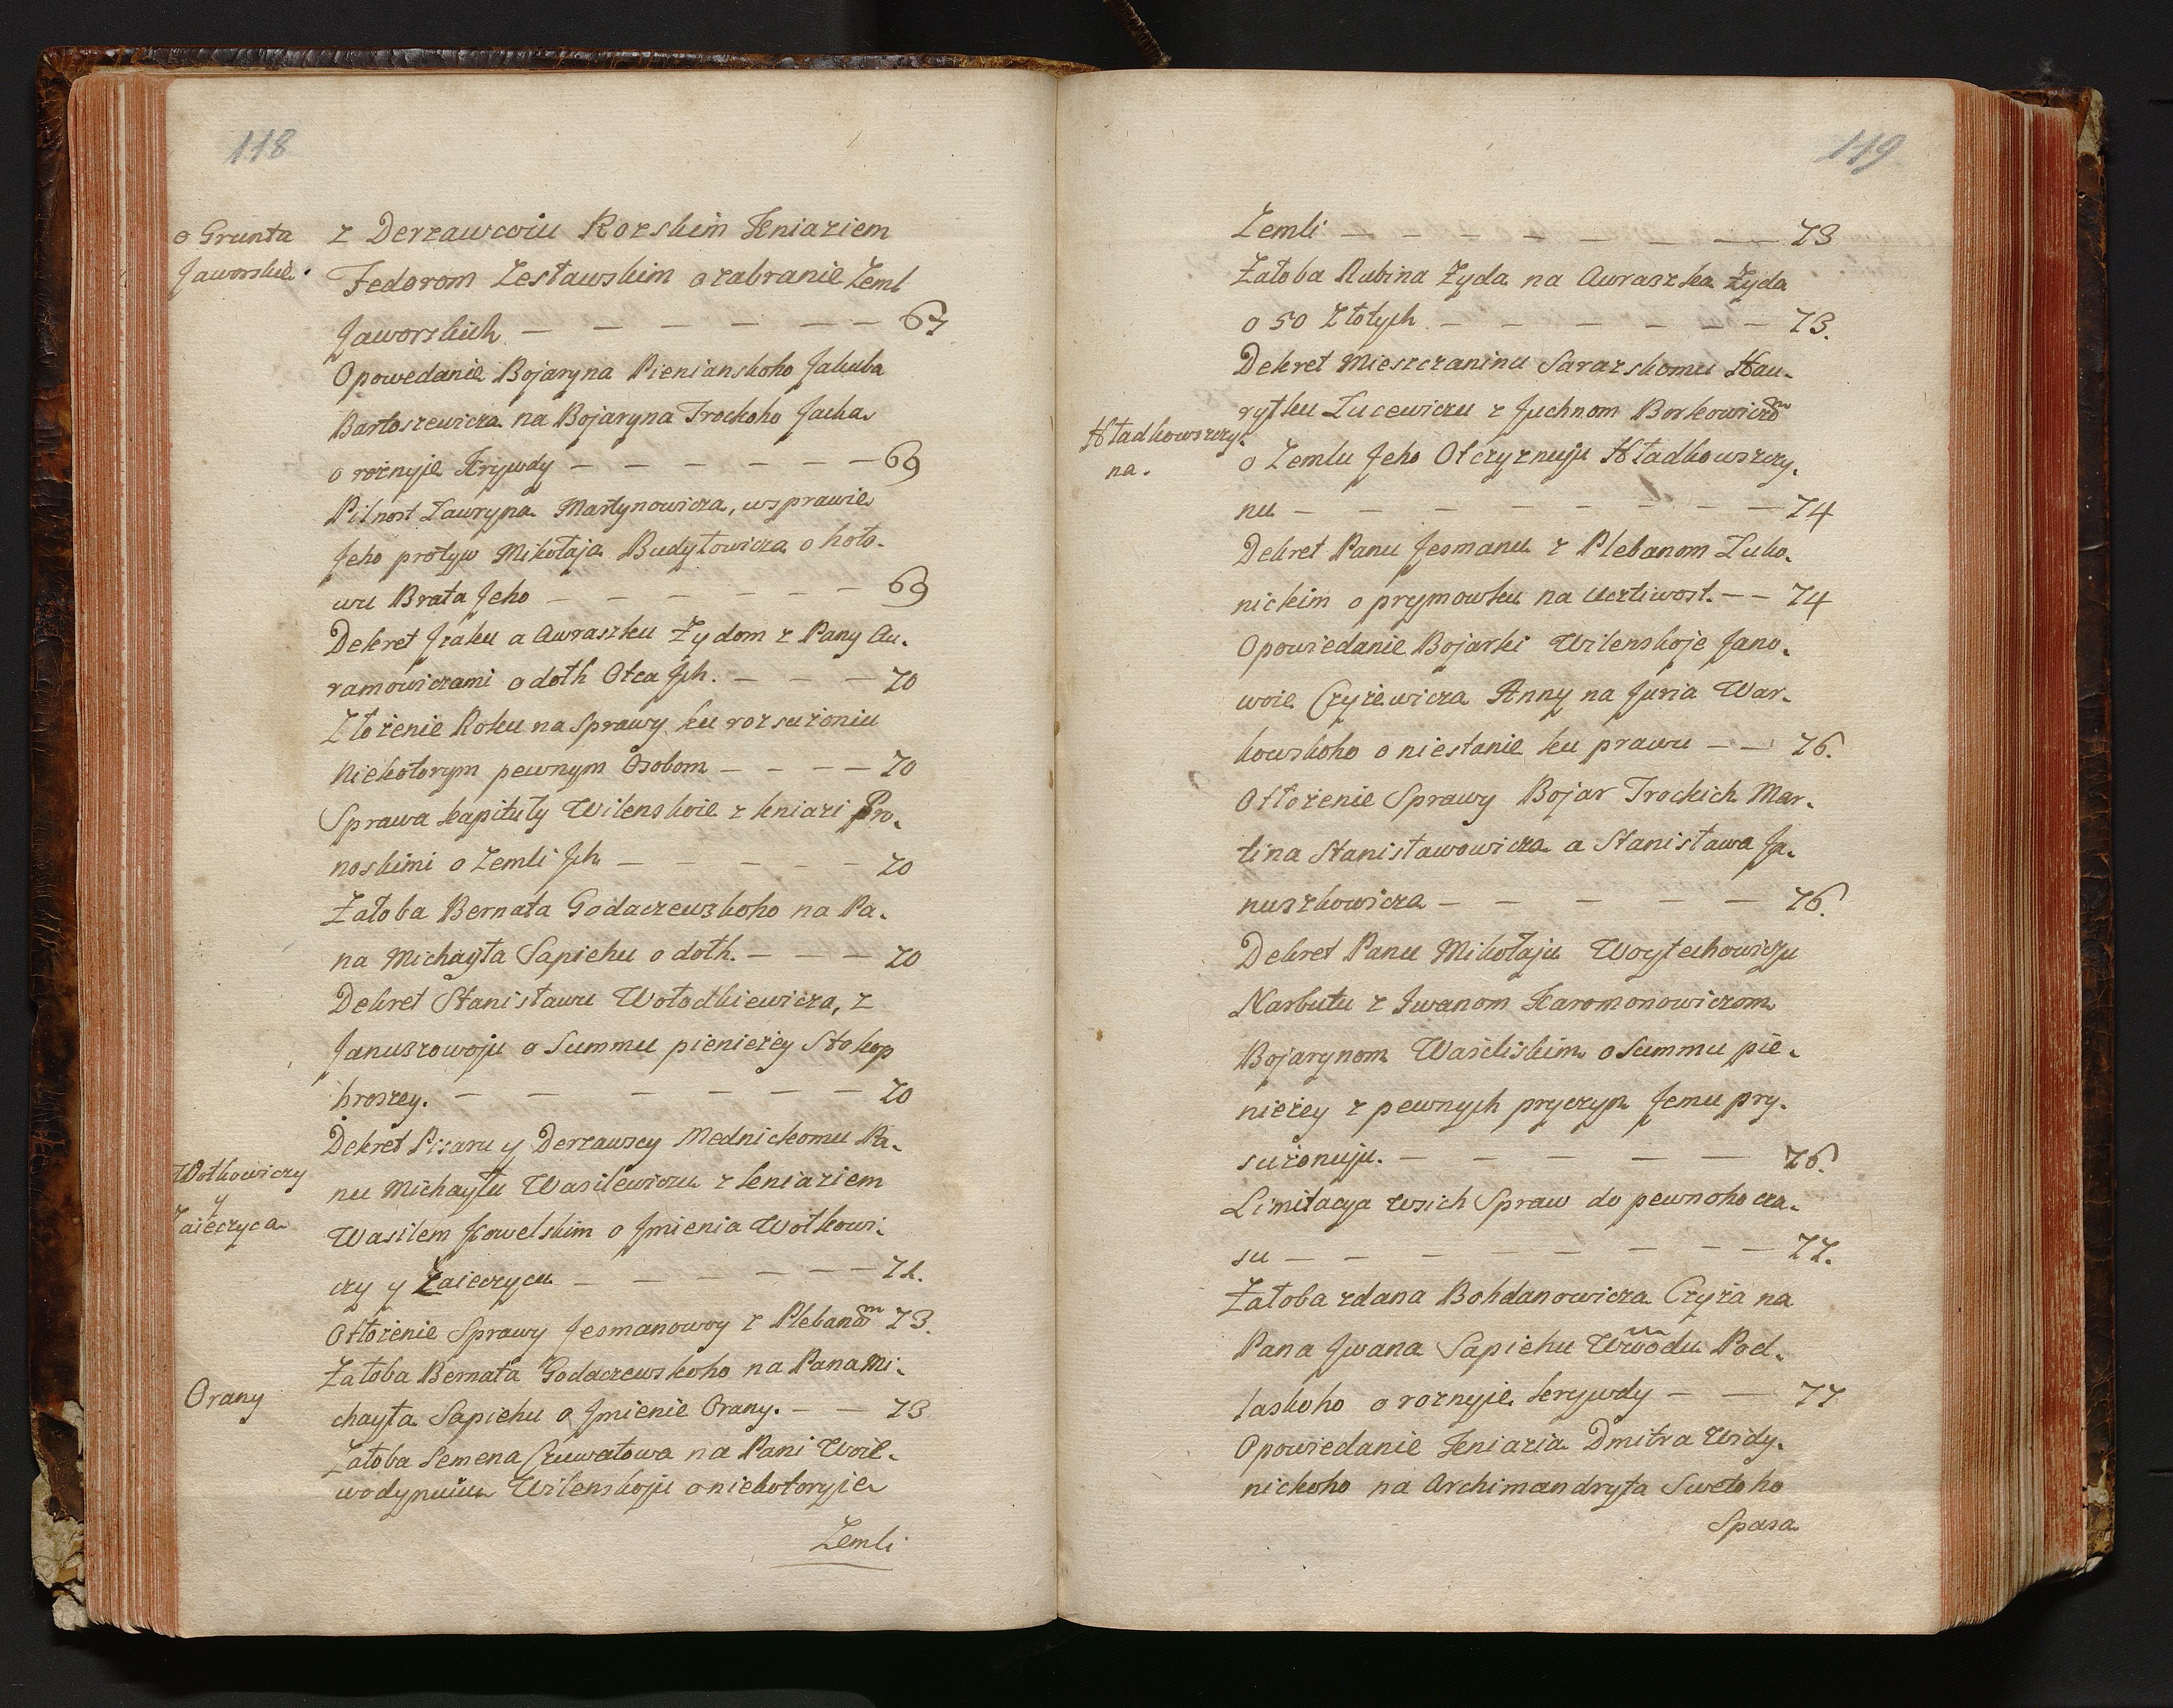 118
o Grunta
Jaworskie.
z Derzawcoiu Rozskim Kniaziem
Fedorom Zesławskim o zabranie Zeml
Jaworskich — — — — — — — 67
Opowedanie Bojaryna Pienianskoho Jakuba
Bartoszewicza na Bojaryna Trockoho Jacka
o rożnyje Krywdy — — — — — — 69
Pilnost Ławryna Martynowicza, wsprawie
Jeho protyw Mikołaja Budytowicza o hoło-
wu Brata Jeho — — — — — — 69
Dekret Izaku a Awraszku Żydom z Pany Au-
ramowiczami o dołh Otca Jch. — — — 70
Złożenie Roku na Sprawy ku rozsużoniu
Niekotorym pewnym Osobom — — — — 70
Sprawa kapituły Wilenskoie z kniazi Pro-
noskimi o Zemli Jch — — — — — 70
Żałoba Bernata Godaczewskoho na Pa-
na Michayła Sapiehu o dołh. — — — 70
Dekret Stanisławu Wołodkiewicza, z
Januszowoju o Summu pieniężey Sto kop
hroszey. — — — — — — 70
Wołkowiczy
y
Zaieczyca
Dekret Pisaru y Derzawcy Mednickomu Pa-
nu Michayłu Wasilewiczu z kniaziem
Wasilem Kowelskim o Jmienia Wołkowi-
czy y Zaieczycu — — — — — — 71.
Otłożenie Sprawy Jesmanowoy z Plebanom 73.
Orany
Żałoba Bernata Godaczewskoho na Pana Mi-
chayła Sapiehu o Jmienie Orany. — — 73
Żałoba Semena Czuwatowa na Pani Woie-
wodynuiu Wilenskoju o niekotoryje
Zemli
119
Zemli — — — — — — — 73
Żałoba Rubina Żyda na Awraszka Żyda
o 50 Złotych — — — — — — — 73.
Dekret Mieszczaninu Sarazskomu Hau-
rytku Łucewiczu z Juchnom Borkowiczom
Hładkowszczy-
na.
o Zemlu Jeho Otczyznuju Hładkowszczy-
nu — — — — — — — — 74
Dekret Panu Jesmanu z Plebanom Łuko-
nickim o prymowku na Ucztiwost. — — 74
Opowiedanie Bojarki Wilenskoje Jano-
woie Czyżewicza Anny na Juria War-
kowskoho o niestanie ku prawu — — 76.
Otłożenie Sprawy Bojar Trockich Mar-
tina Stanisławowicza a Stanisława Ja-
nuszkowicza — — — — — 76.
Dekret Panu Mikołaju Woytechowiczu
Narbutu z Iwanom Karomonowiczom
Bojarynom Wasiliskim o Summu pie-
nieżey z pewnych pryczyn Jemu pry-
sużonuju. — — — — — 76.
Limitacya wsich Spraw do pewnoho cza-
su — — — — — — — — 77.
Żałoba zdana Bohdanowicza Czyża na
Pana Jwana Sapiehu Wwodu Pod-
laskoho o rożnyje krywdy — — 77
Opowiedanie Kniazia Dmitra Widy-
nickoho na Archimandryta Swetoho
Spasa